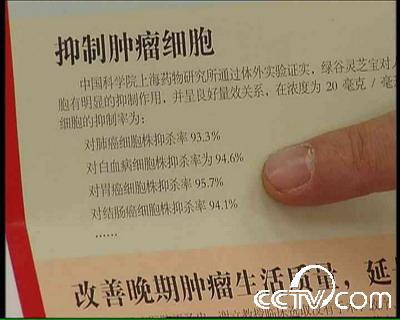 抑制肿瘤细胞
中国科学院上海药物研究所通过体外实验证实，绿谷灵芝宝对人
胞有明显的抑制作用，并呈良好量效关系，在浓度为 20 毫克 / 毫
细胞的抑制率为：
对肺癌细胞株抑杀率 93.3%
对白血病细胞株抑杀率为 94.6%
对胃癌细胞株抑杀率 95.7%
对结肠癌细胞株抑杀率 94.1%
……
改善晚期肿瘤生活质量，延
CCTV.com